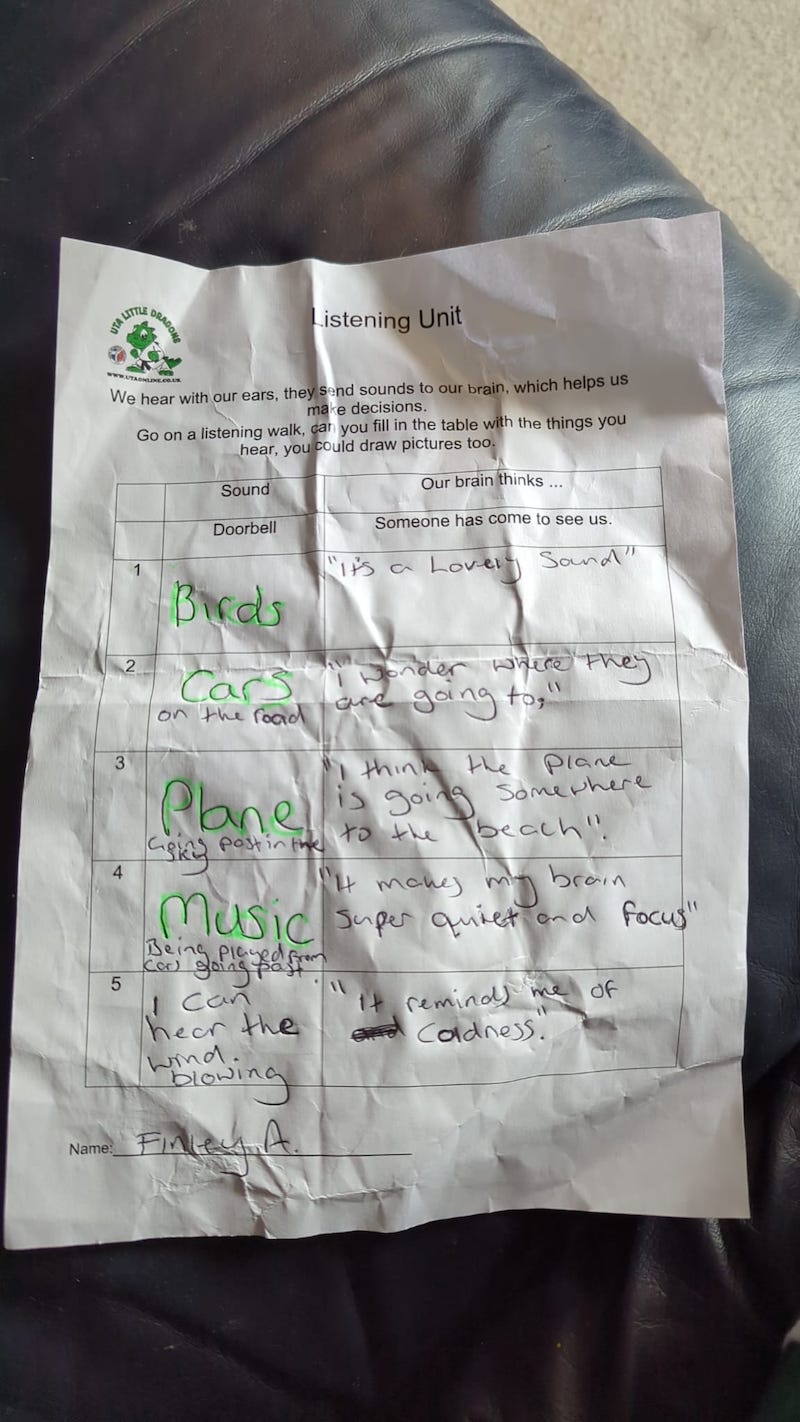 UTA LITTLE DRAGONS
WWW.UTAONLINE.CO.UK
Listening Unit
We hear with our ears, they send sounds to our brain, which helps us
make decisions.
Go on a listening walk, can you fill in the table with the things you
hear, you could draw pictures too.
Sound Our brain thinks ...
Doorbell Someone has come to see us.
1 Birds "It's a Lovely Sound"
2 Cars
on the road
"I wonder where they
are going to,"
3 Plane
Going past in the
sky
"I think the plane
is going somewhere
to the beach".
4 Music
Being played from
cars going past.
"It makes my brain
super quiet and focus"
5 I can
hear the
wind.
blowing
"It reminds me of
Coldness."
Name: Finley A.